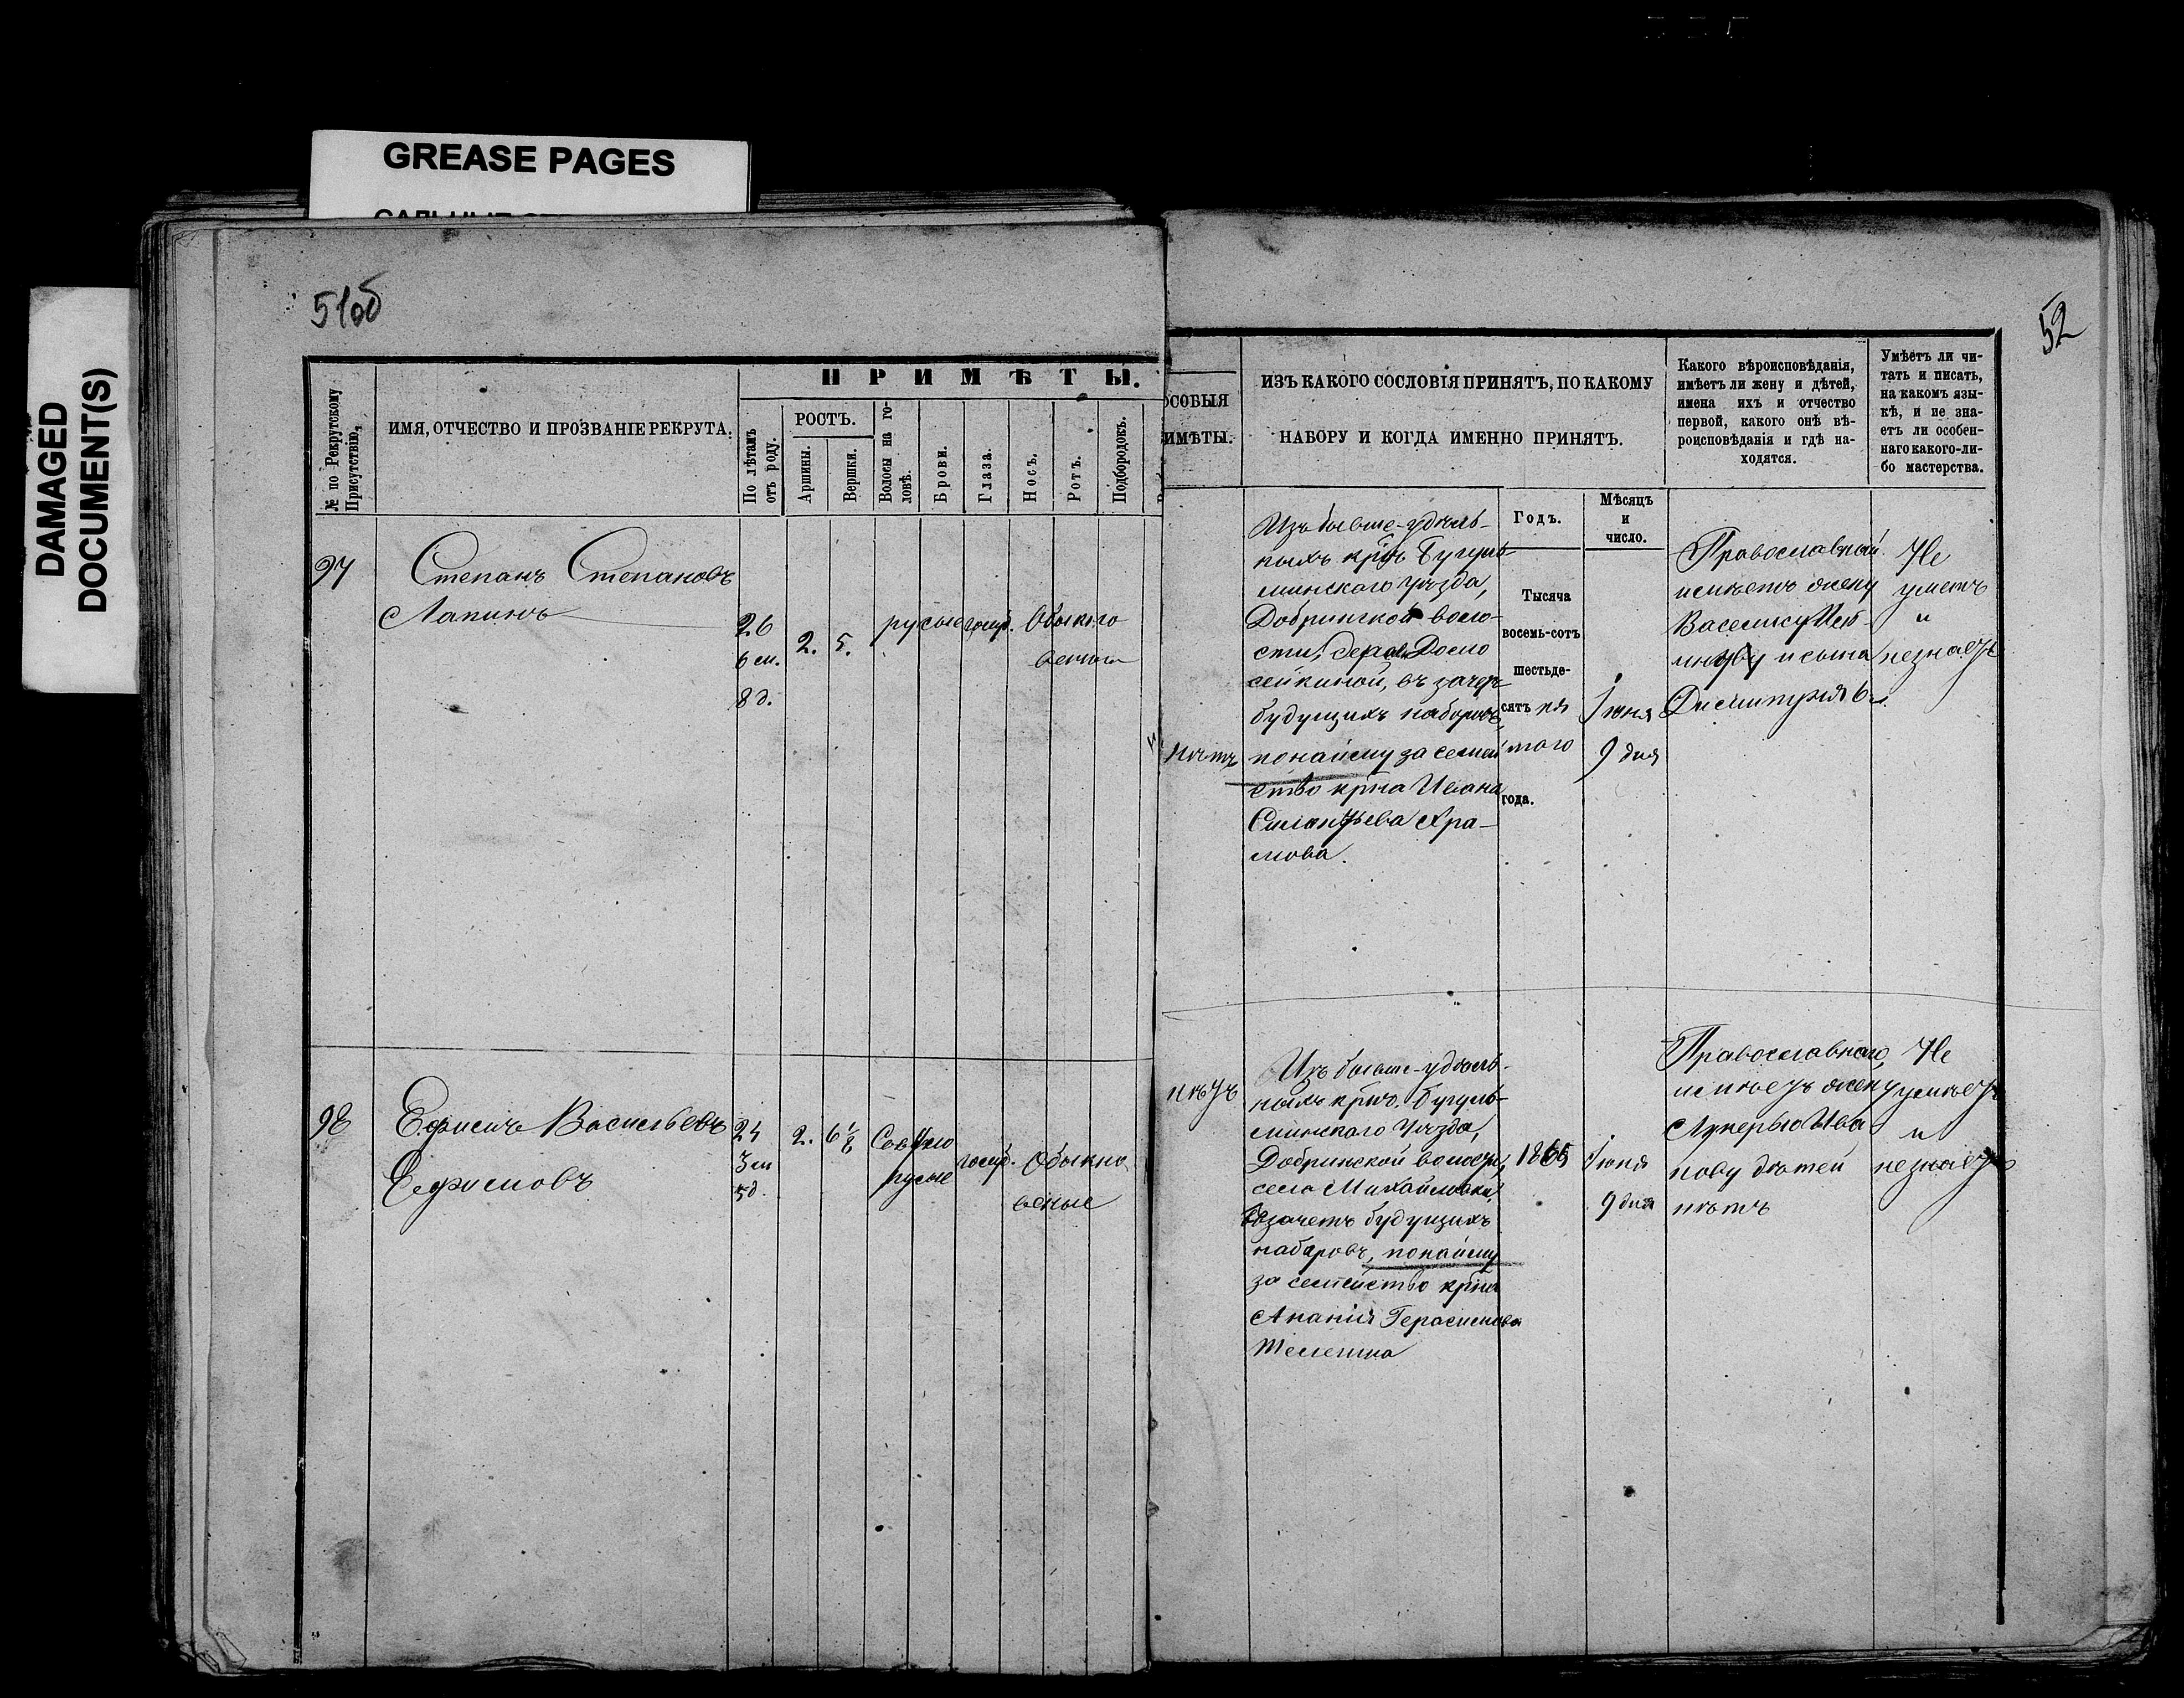 GREASE PAGES
DAMAGED
DOCUMENT(S)
51об
52
№ по Рекрутскому
Присутствію.
ИМЯ, ОТЧЕСТВО И ПРОЗВАНІЕ РЕКРУТА.
ПРИМѢТЫ.
По лѣтамъ
отъ роду.
РОСТЪ.
Аршины.
Вершки.
Волосы на го-
ловѣ.
Брови.
Глаза.
Носъ.
Ротъ.
Подбородокъ.
ОСОБЫЯ
ИМѢТЫ.
ИЗЪ КАКОГО СОСЛОВІЯ ПРИНЯТЪ, ПО КАКОМУ
НАБОРУ И КОГДА ИМЕННО ПРИНЯТЪ.
Какого вѣроисповѣданія,
имѣетъ ли жену и дѣтей,
имена ихъ и отчество
первой, какого онѣ вѣ-
роисповѣданія и гдѣ на-
ходятся.
Умѣетъ ли чи-
тать и писать,
на какомъ язы-
кѣ, и не зна-
етъ ли особен-
наго какого-ли-
бо мастерства.
Годъ.
Мѣсяцъ
и
число.
97
Степанъ Степановъ
Лапинъ
26
6 м.
8 д.
2.
5.
русые
Обыкно
венные
нѣтъ
Изъ бывше-удѣль-
ныхъ крнъ Бугуль-
минскаго уѣзда,
Добринской воло-
сти,
сейкиной, въ зачетъ
будущихъ наборовъ,
по найму за семей
ство крна Ивана
Силантьева Хра-
мова.
Тысяча
восемь-сотъ
шестьде-
сятъ пя
таго
года.
Іюня
9 дня
Православный
имѣетъ жену
Василису
и сына
Дмитрія 6 л.
Не
умѣетъ
и
незнаетъ
98
Ефимъ Васильевъ
Ефимовъ
24
3 м
5 д.
2.
6 1/8
Свѣтло
русые
Обыкно
венные
нѣтъ
Изъ бывше-удѣль-
ныхъ крнъ. Бугуль-
минскаго Уѣзда,
Добринской волости,
села Михайловки,
въ зачетъ будущихъ
наборовъ, по найму
за семейство крна
Ананія Герасимова
1865
Іюня
9 дня
Православнаго,
имѣетъ жену
Лукерью Ива
нову дѣтей
нѣтъ
Не
умѣетъ
и
незнаетъ